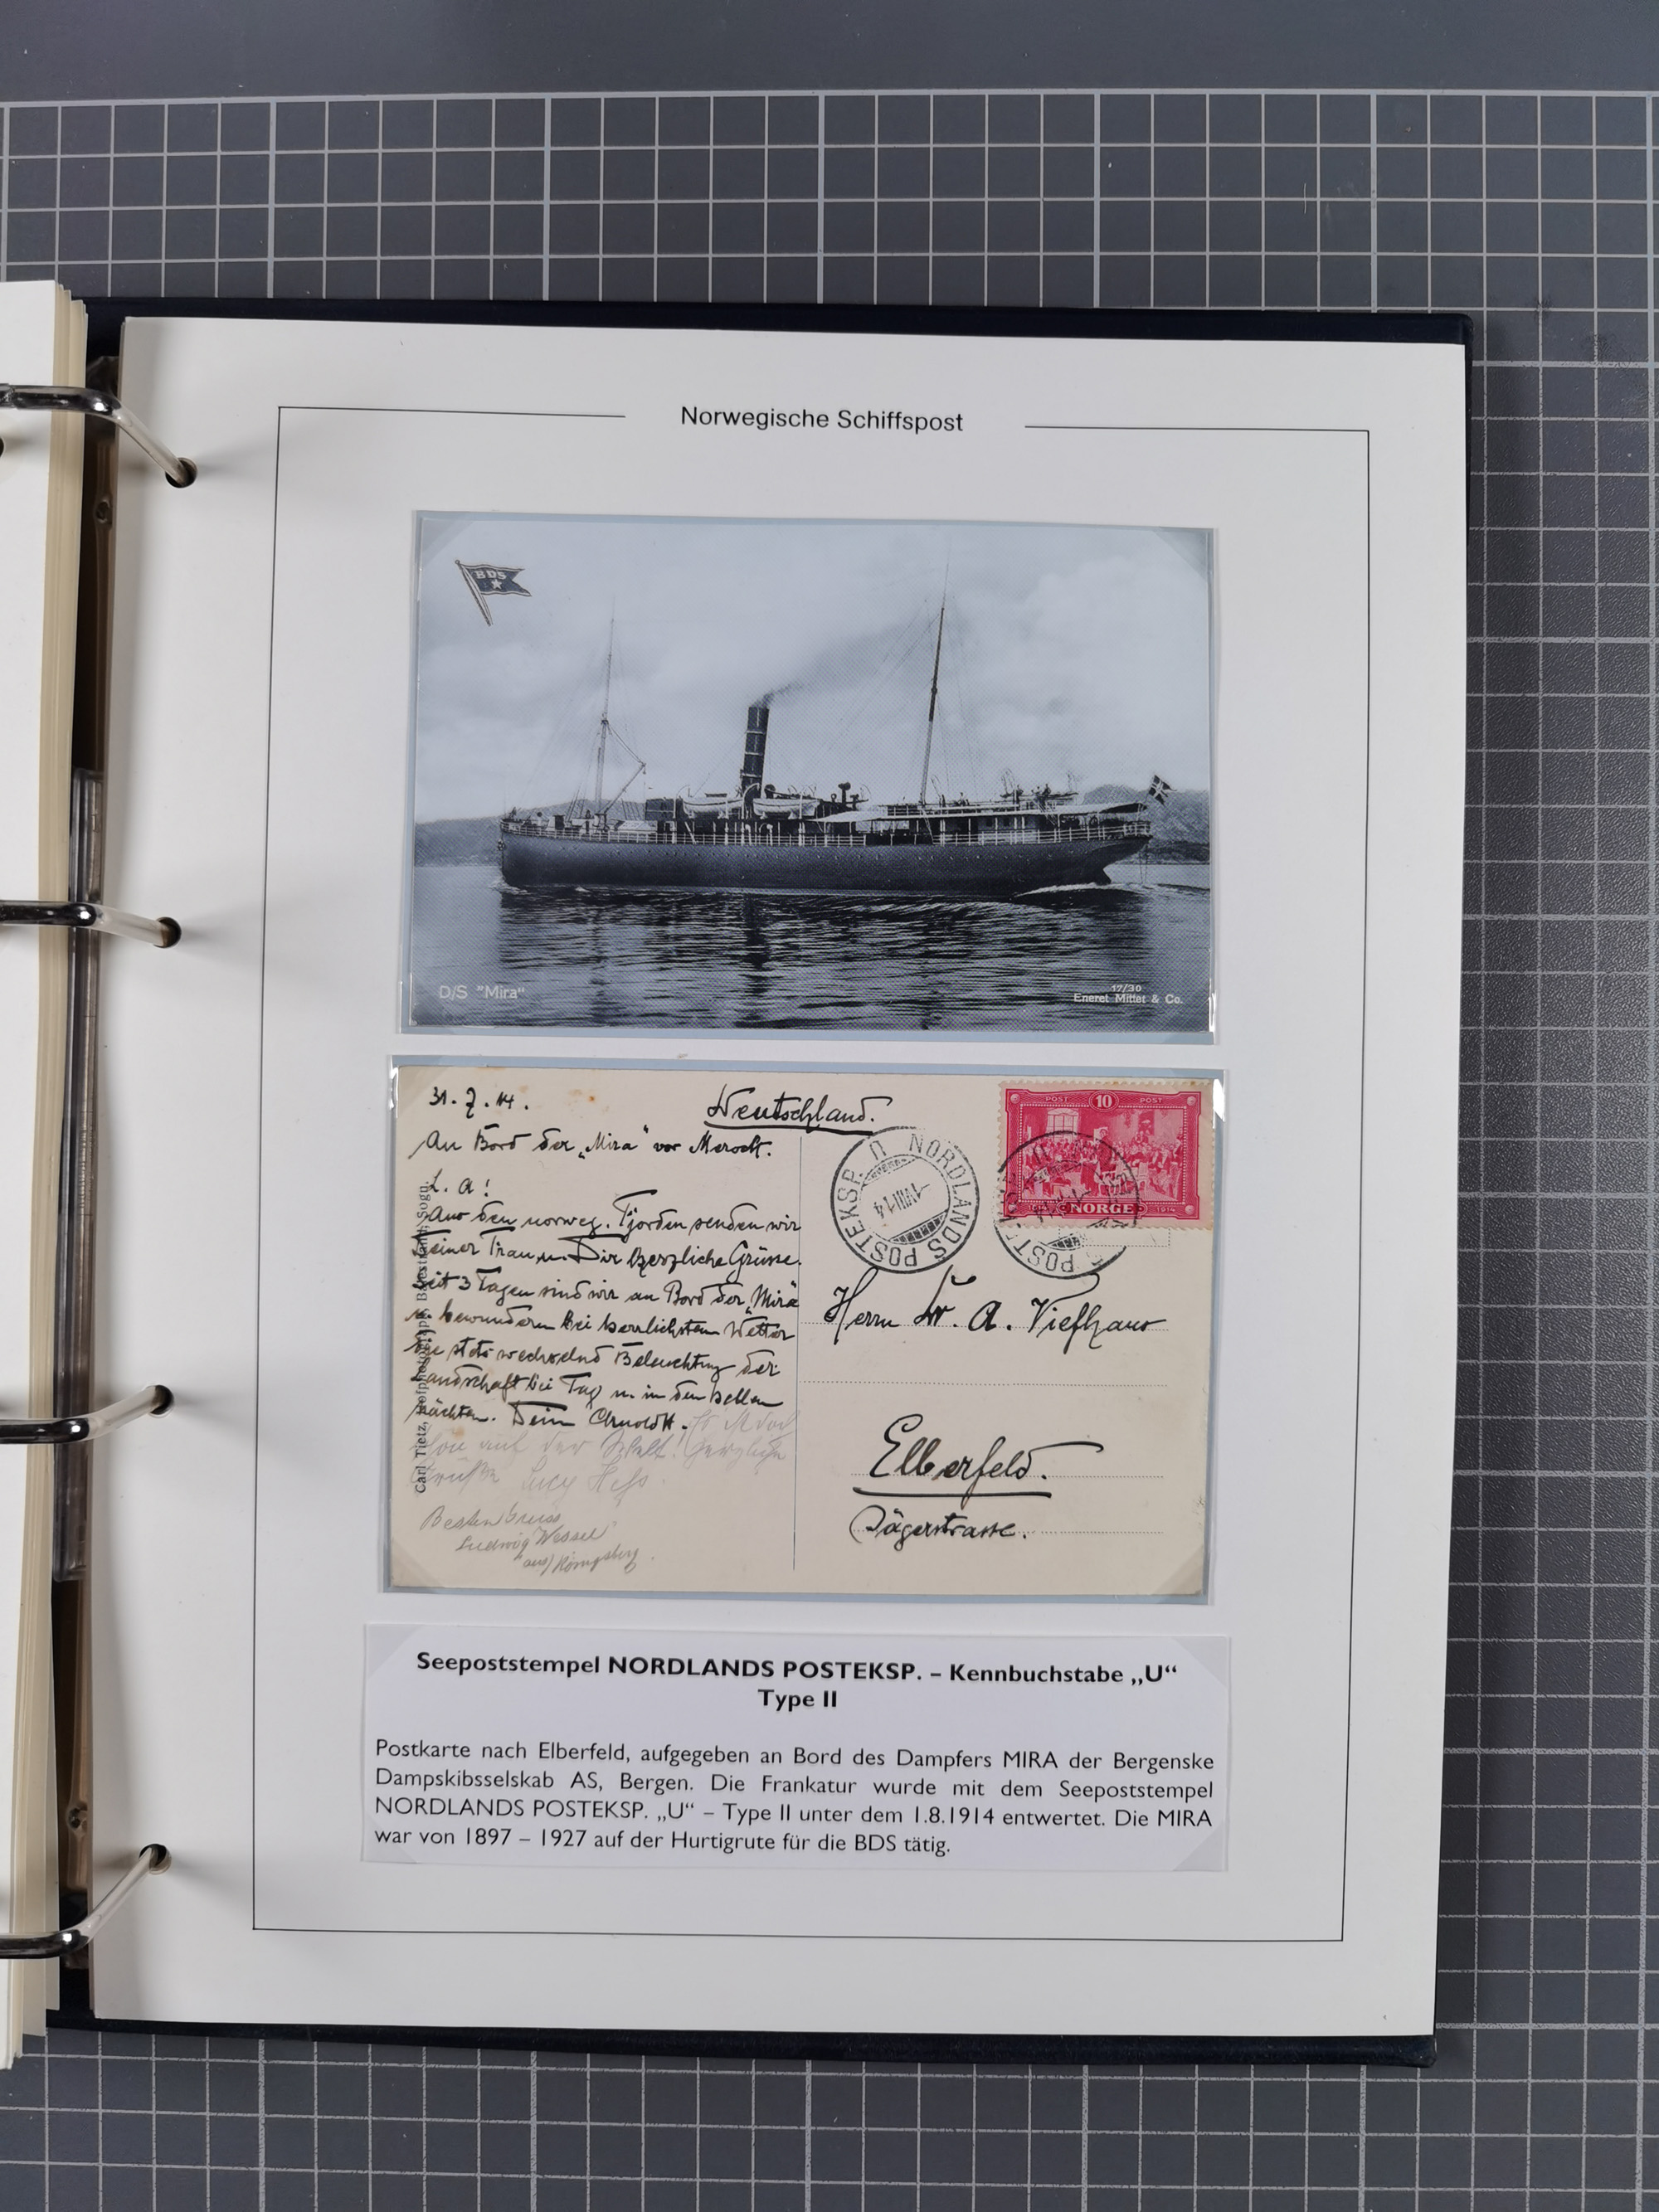 Norwegische Schiffspost
BDS
D/S "Mira"
17/30
Eneret Mittet & Co.
31.7.14.
Deutschland.
An Bord der „Mira“ vor Merock.
L. A!
Aus den norweg. Fjorden senden wir
Deiner Frau u. Dir herzliche Grüsse.
Seit 3 Tagen sind wir an Bord der „Mira“
u. bewundern bei herrlichstem Wetter
die stets wechselnd Beleuchtung der
Landschaft bei Tag u. in den hellen
Nächten. Dein
auf der Welt! Herzliche
Grüße Lucy Hess.
Besten Gruss
Ludwig Wessel
aus Königsberg.
Carl Tietz,
NORDLANDS POSTEKSP. U
1 VIII 14
POST 10 POST
NORGE
1914
Herrn Dr. A. Viefhaus
Elberfeld.
Jägerstrasse.
Seepoststempel NORDLANDS POSTEKSP. – Kennbuchstabe „U“
Type II
Postkarte nach Elberfeld, aufgegeben an Bord des Dampfers MIRA der Bergenske
Dampskibsselskab AS, Bergen. Die Frankatur wurde mit dem Seepoststempel
NORDLANDS POSTEKSP. „U“ – Type II unter dem 1.8.1914 entwertet. Die MIRA
war von 1897 – 1927 auf der Hurtigrute für die BDS tätig.